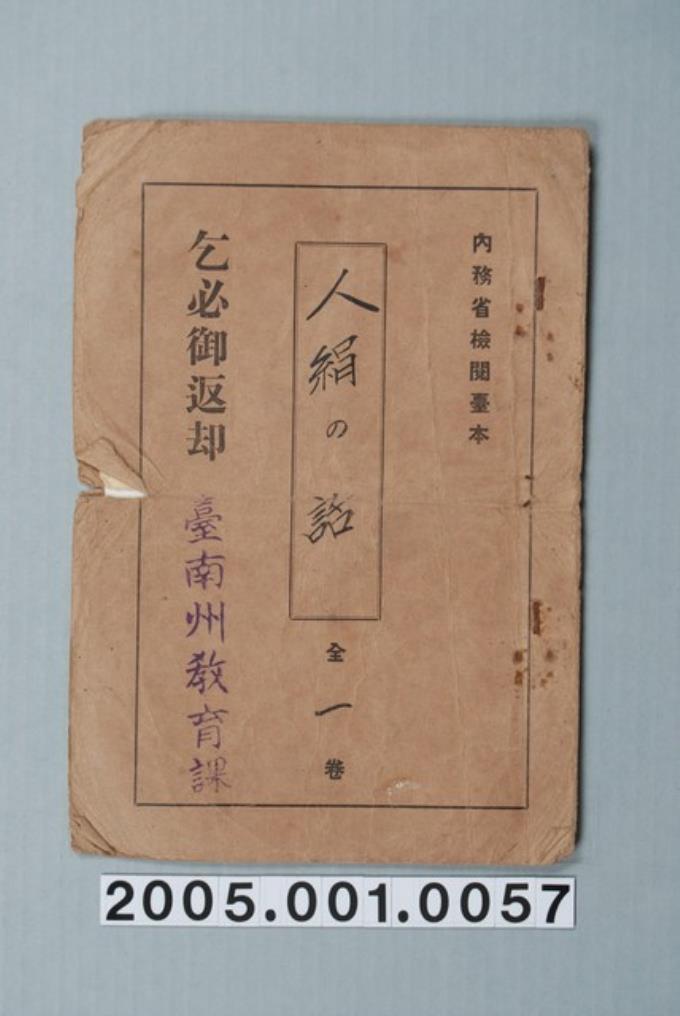 內務省檢閱臺本
人絹の話
全一卷
乞必御返却
臺南州教育課
2005.001.0057